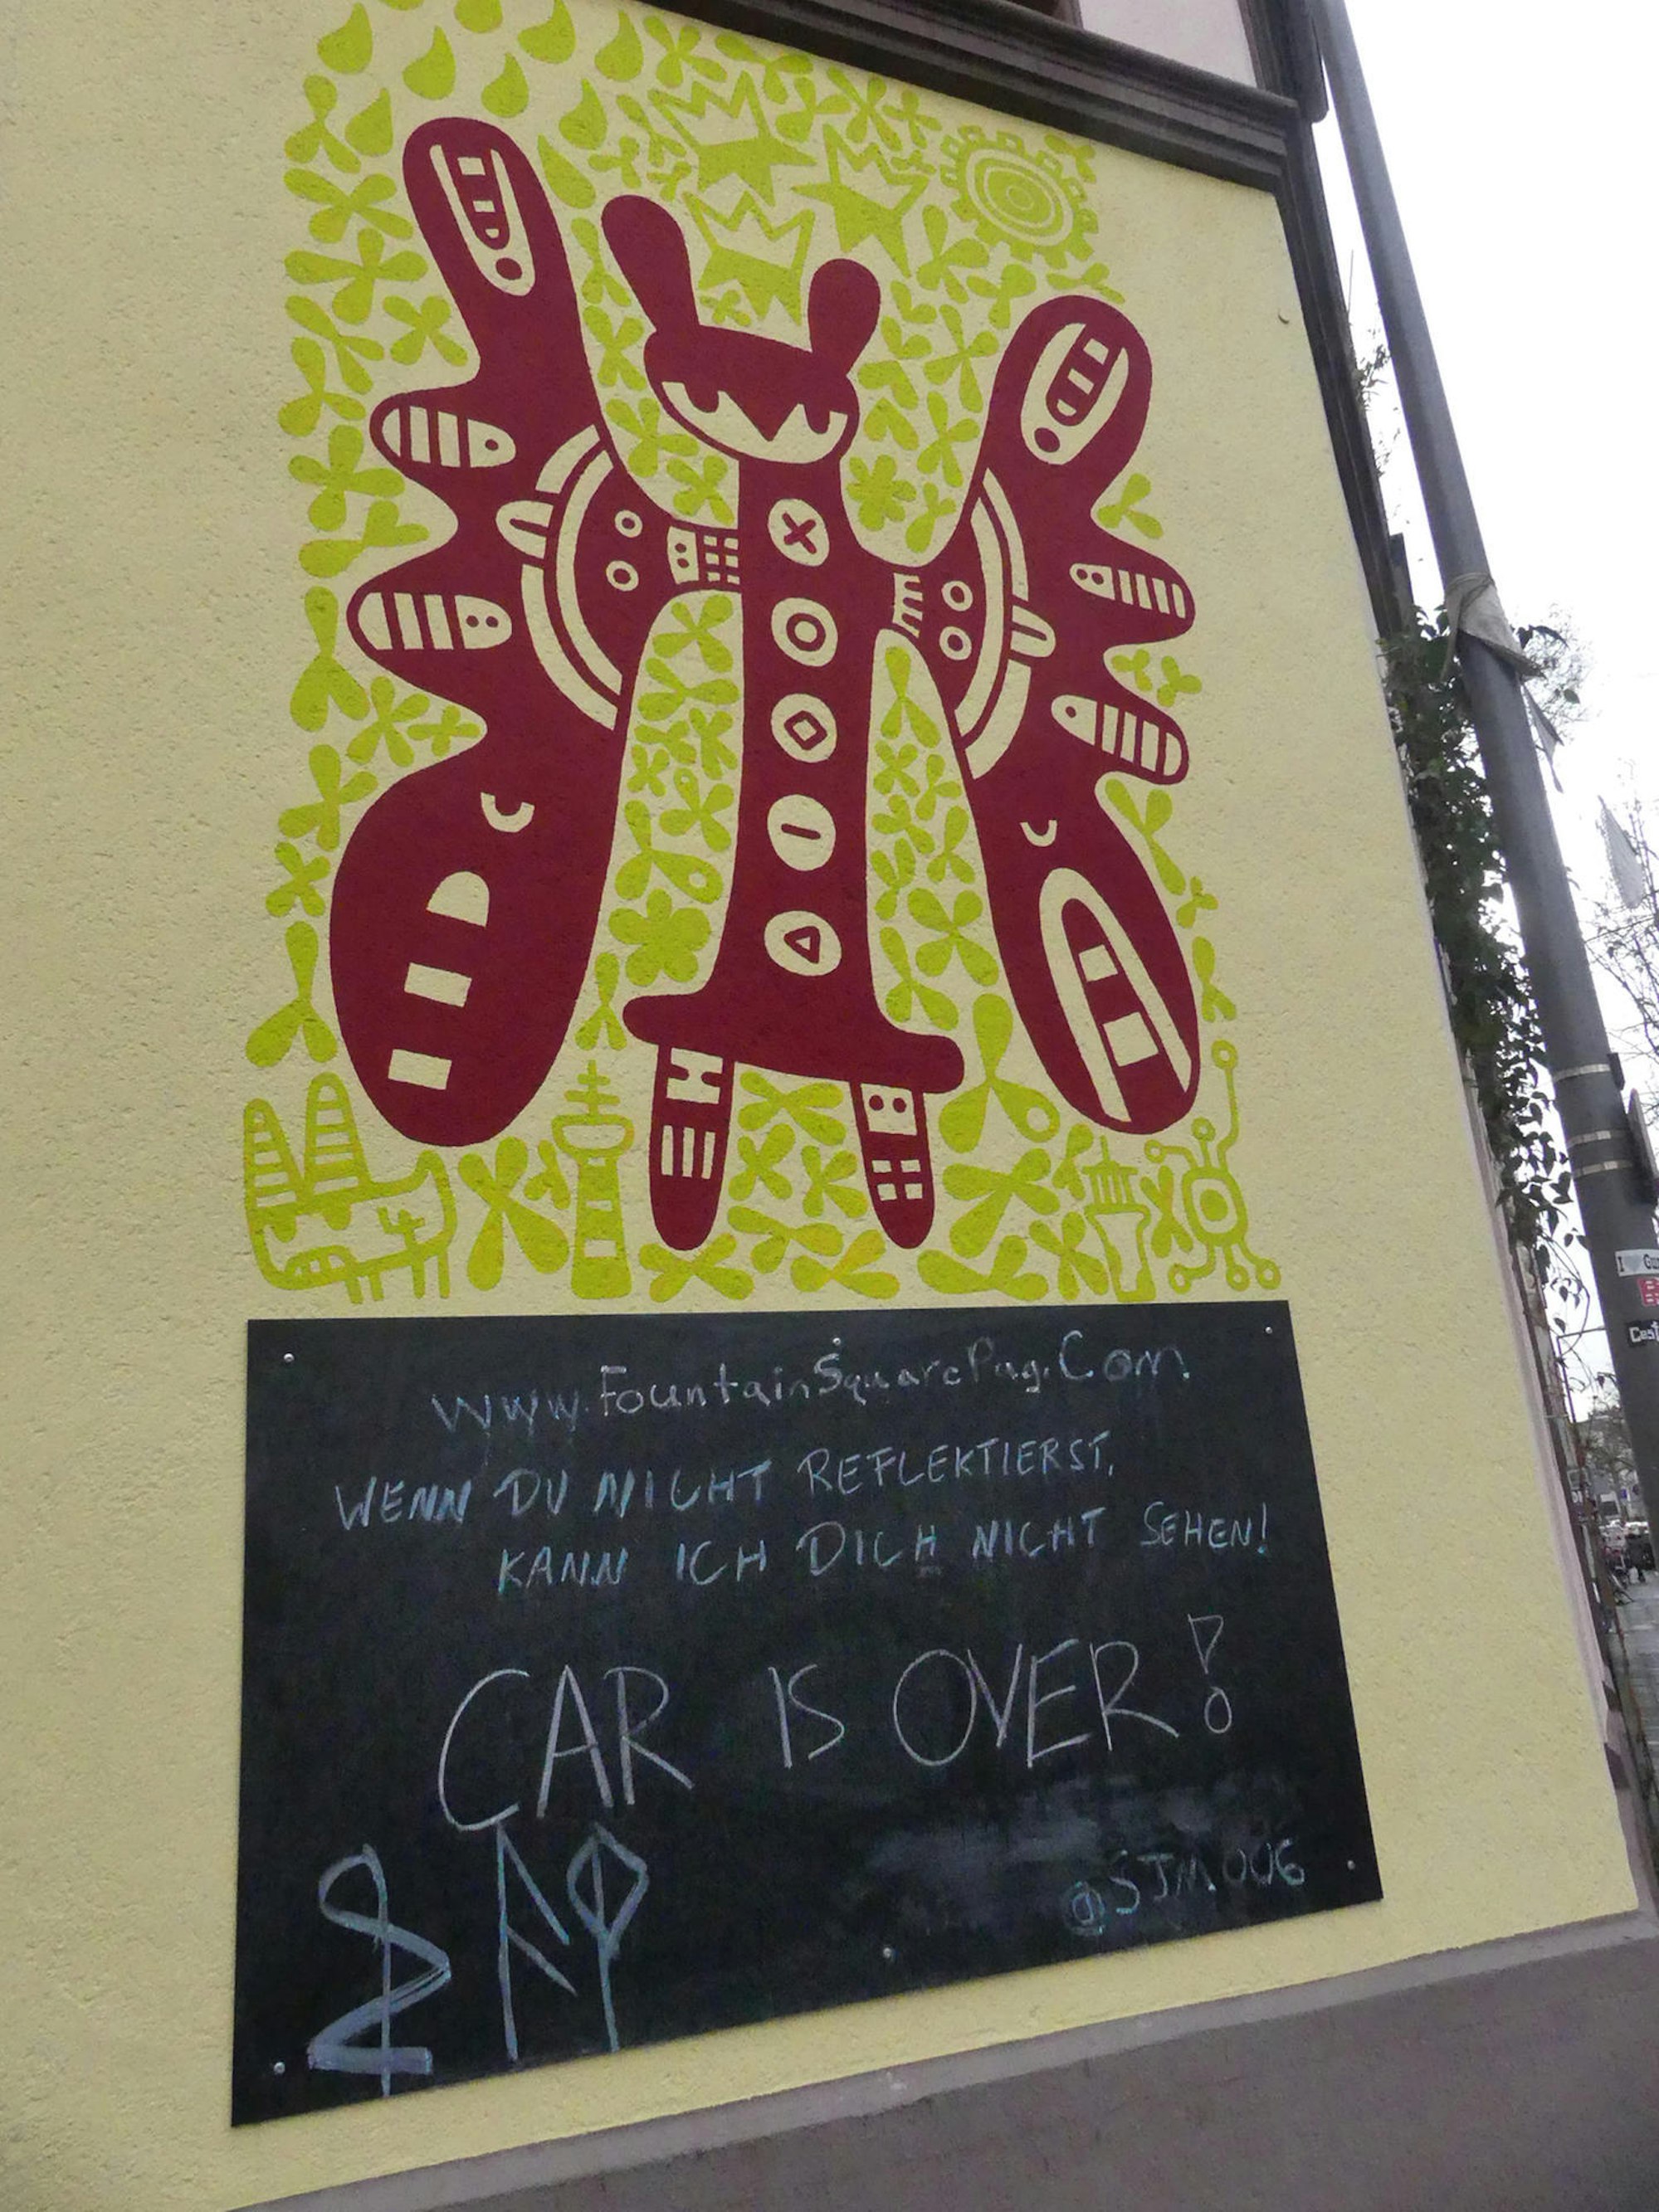 www.FountainSquarePag.Com
WENN DU NICHT REFLEKTIERST,
KANN ICH DICH NICHT SEHEN!
CAR IS OVER!
@SJM006